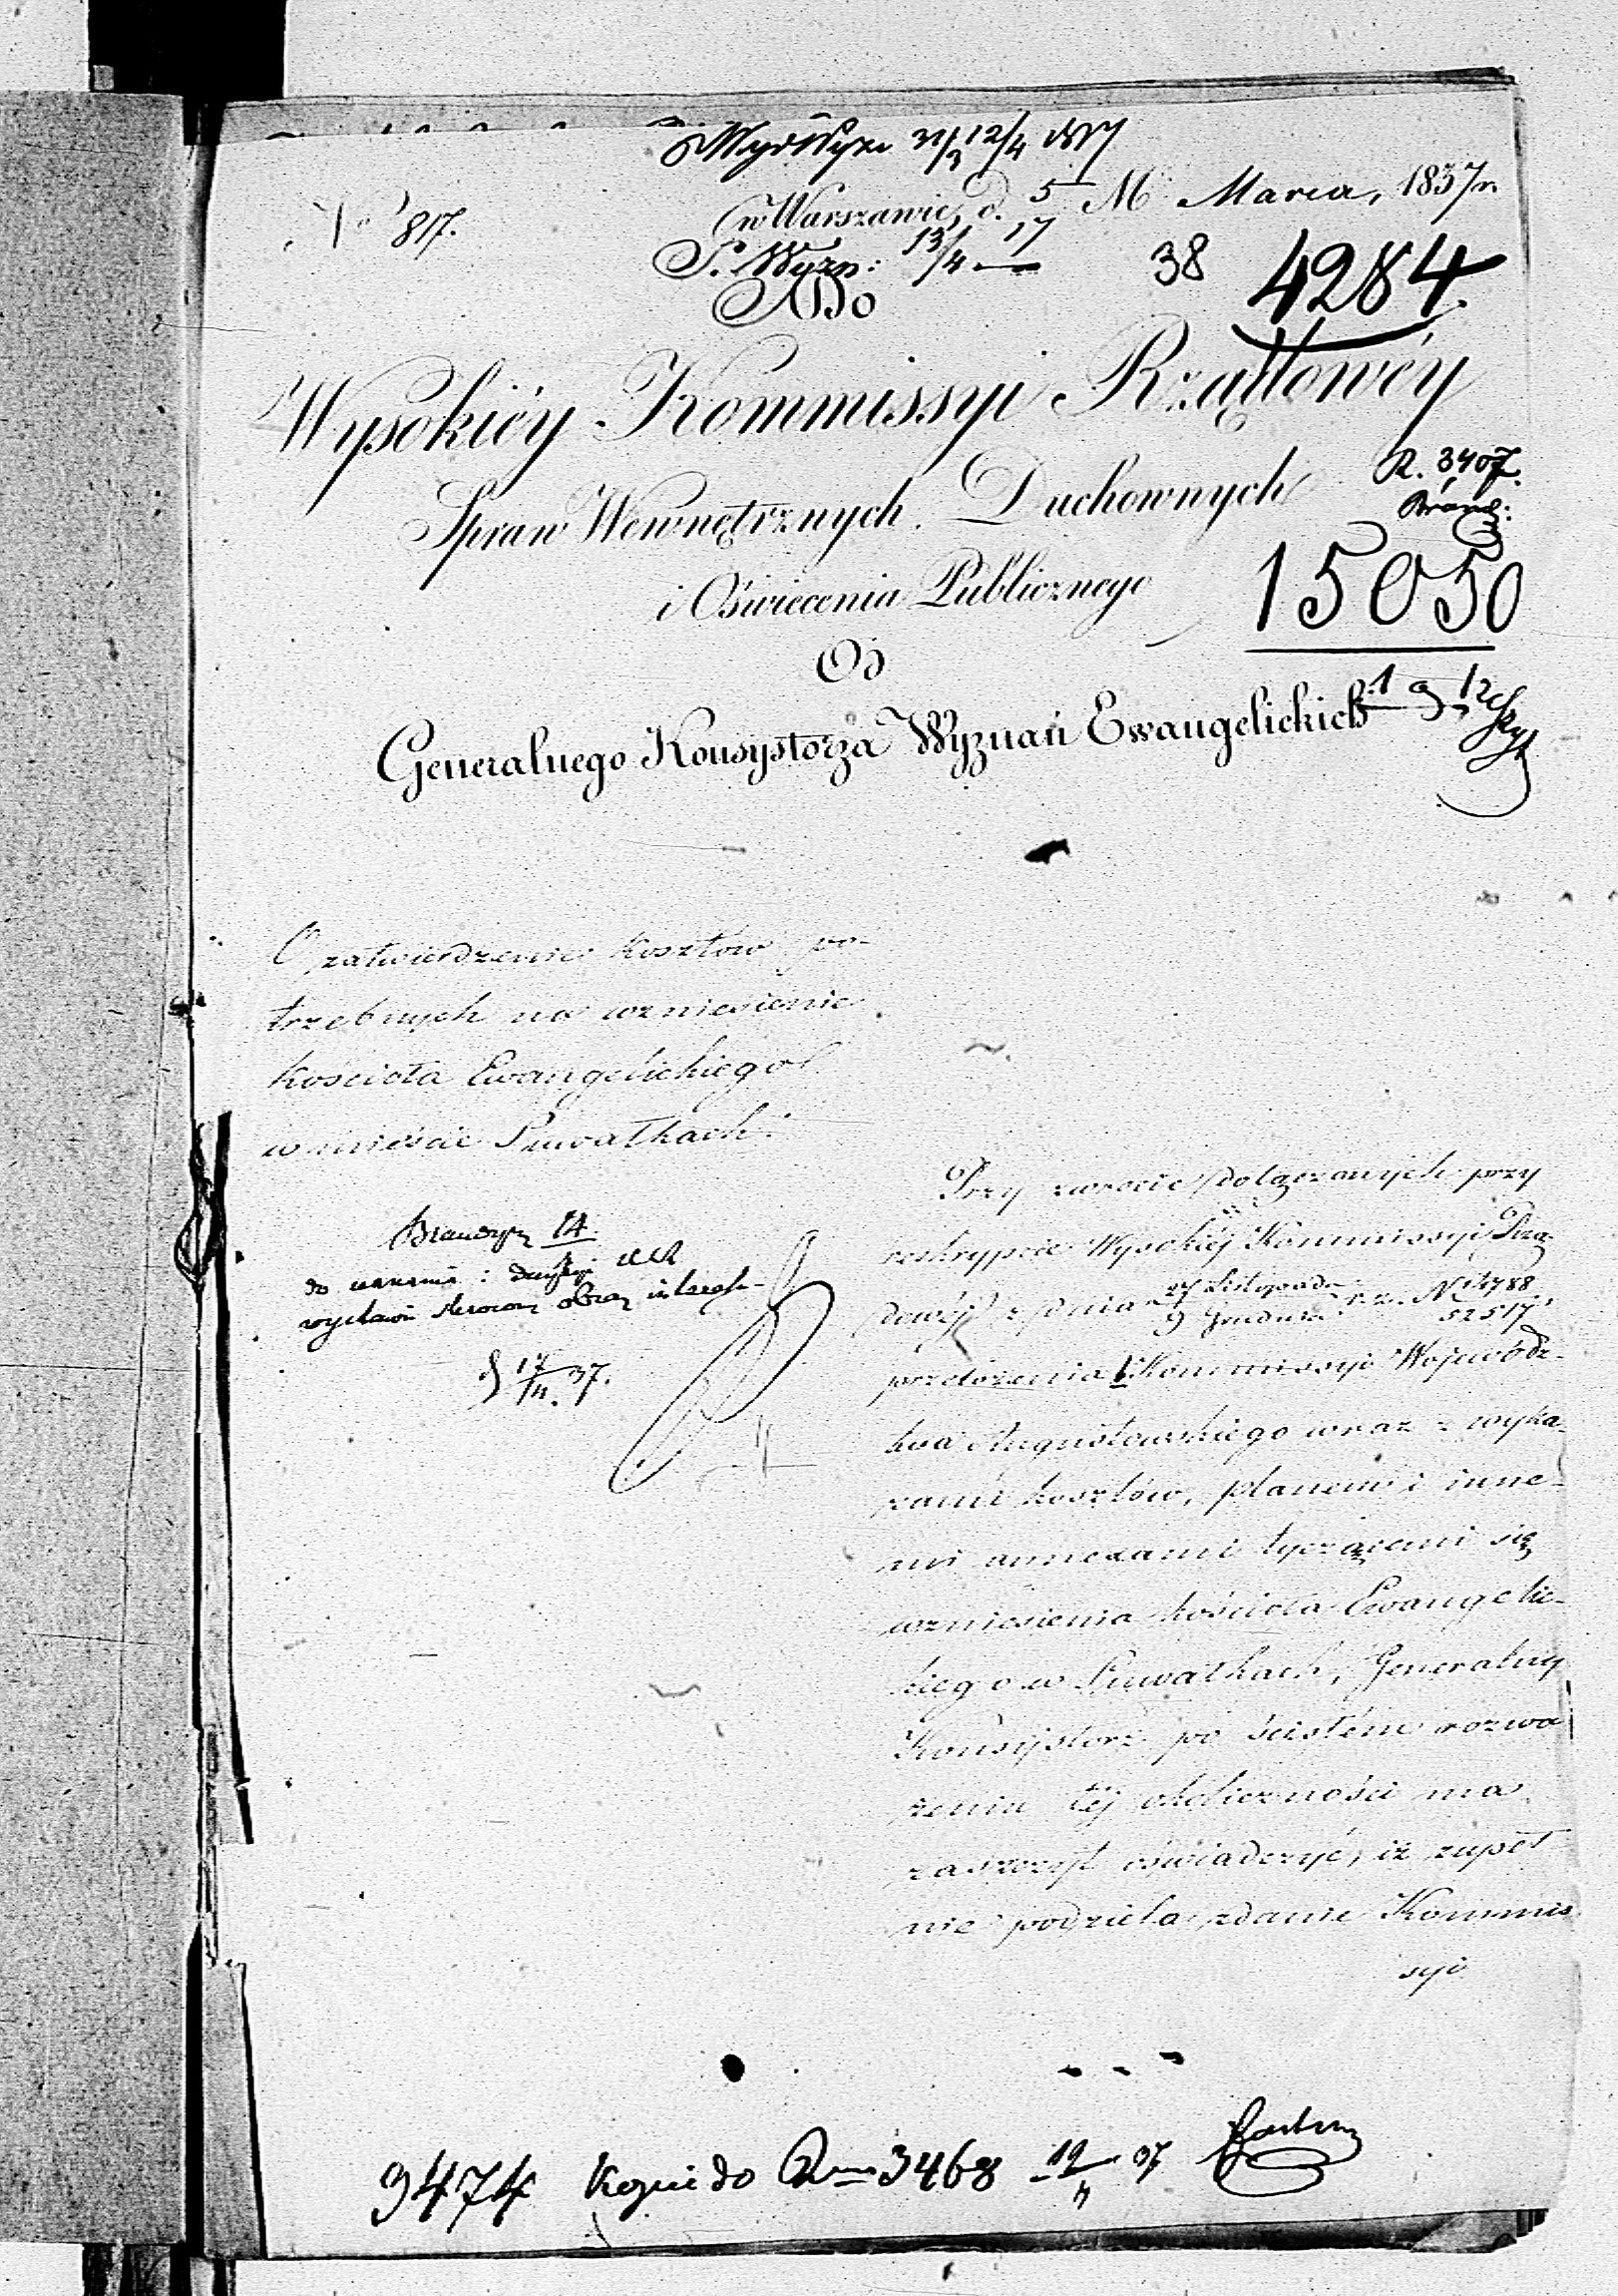 31/3 12/4
No 817.
w Warszawie, d. 5/17 M. Marca, 1837 r.
S. Wyzn: 13/4
38
4284.
Do
Wysokiéy Kommissyi Rządowéy
R. 3407.
Spraw Wewnętrznych, Duchownych
i Oświecenia Publicznego
15050
Od
Generalnego Konsystorza Wyznań Ewangelickich
O zatwierdzenie kosztów po-
trzebnych na wzniesienie
kościoła Ewangelickiego
w mieście Suwałkach.
Przy zwrocie dołączonych przy
reskrypcie Wysokiéj Kommissyi Rzą-
dowéj z dnia 27 Listopada / 9 Grudnia r. z. No 4788 / 52517,
przełożenia Kommissyi Wojewódz-
twa Augustowskiego wraz z wyka-
zami kosztów, planem i inne-
mi annexami tyczącemi się
wzniesienia kościoła Ewangelic-
kiego w Suwałkach, Generalny
Konsystorz po ścisłém rozwa
żeniu téj okoliczności ma
zaszczyt oświadczyć, iż zupeł
nie podziela zdanie Kommis
syi
14
do
17/4 37.
3474 Kopie do 3468 19/4 37